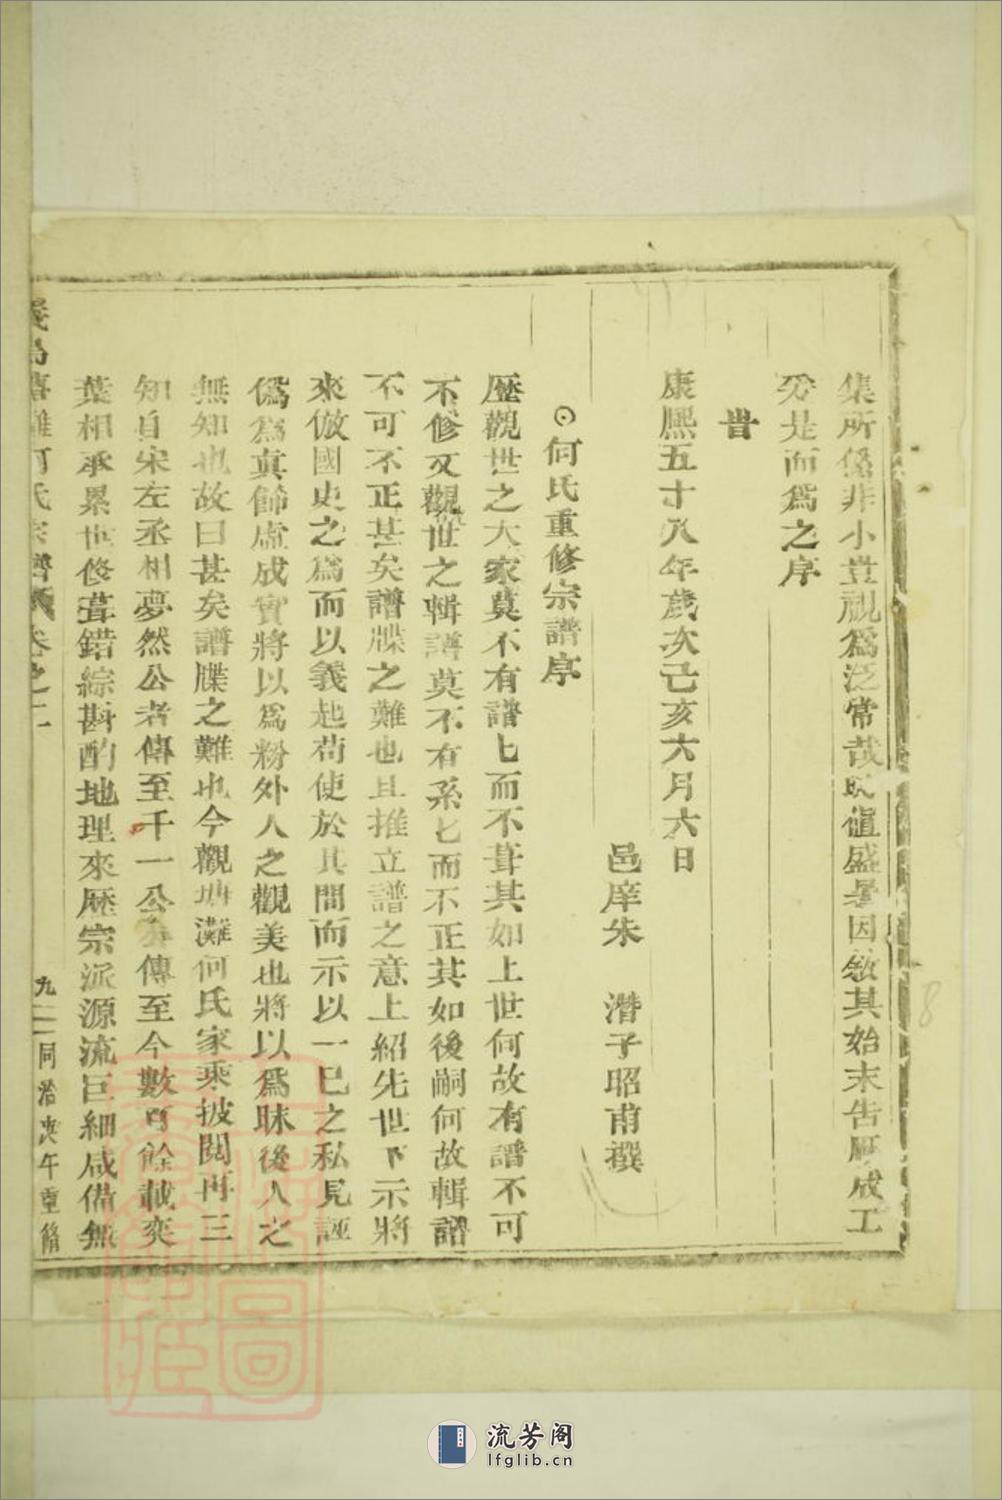 集所係非小豈視為泛常哉時値盛暑因敘其始末告厥成工
爰是而爲之序
旹
康熙五十八年歲次己亥六月六日
邑庠朱 濳子昭甫撰
⊙何氏重修宗譜序
歷觀世之大家莫不有譜匕而不葺其如上世何故有譜不可
不修又觀世之輯譜莫不有系匕而不正其如後嗣何故輯譜
不可不正甚矣譜牒之難也且推立譜之意上紹先世下示將
來倣國史之爲而以義起苟使於其間而示以一已之私見誣
僞爲真餙虛成實將以爲粉外人之觀美也將以爲昧後人之
無知也故曰甚矣譜牒之難也今觀塘灘何氏家乘披閱再三
知自宋左丞相夢然公者傳至千一公分傳至今數百餘載奕
葉相承累世修葺錯綜斟酌地理來歷宗派源流巨細咸備無
何氏宗譜 卷之一
九 同治庚午重脩
流芳阁
lfglib.cn